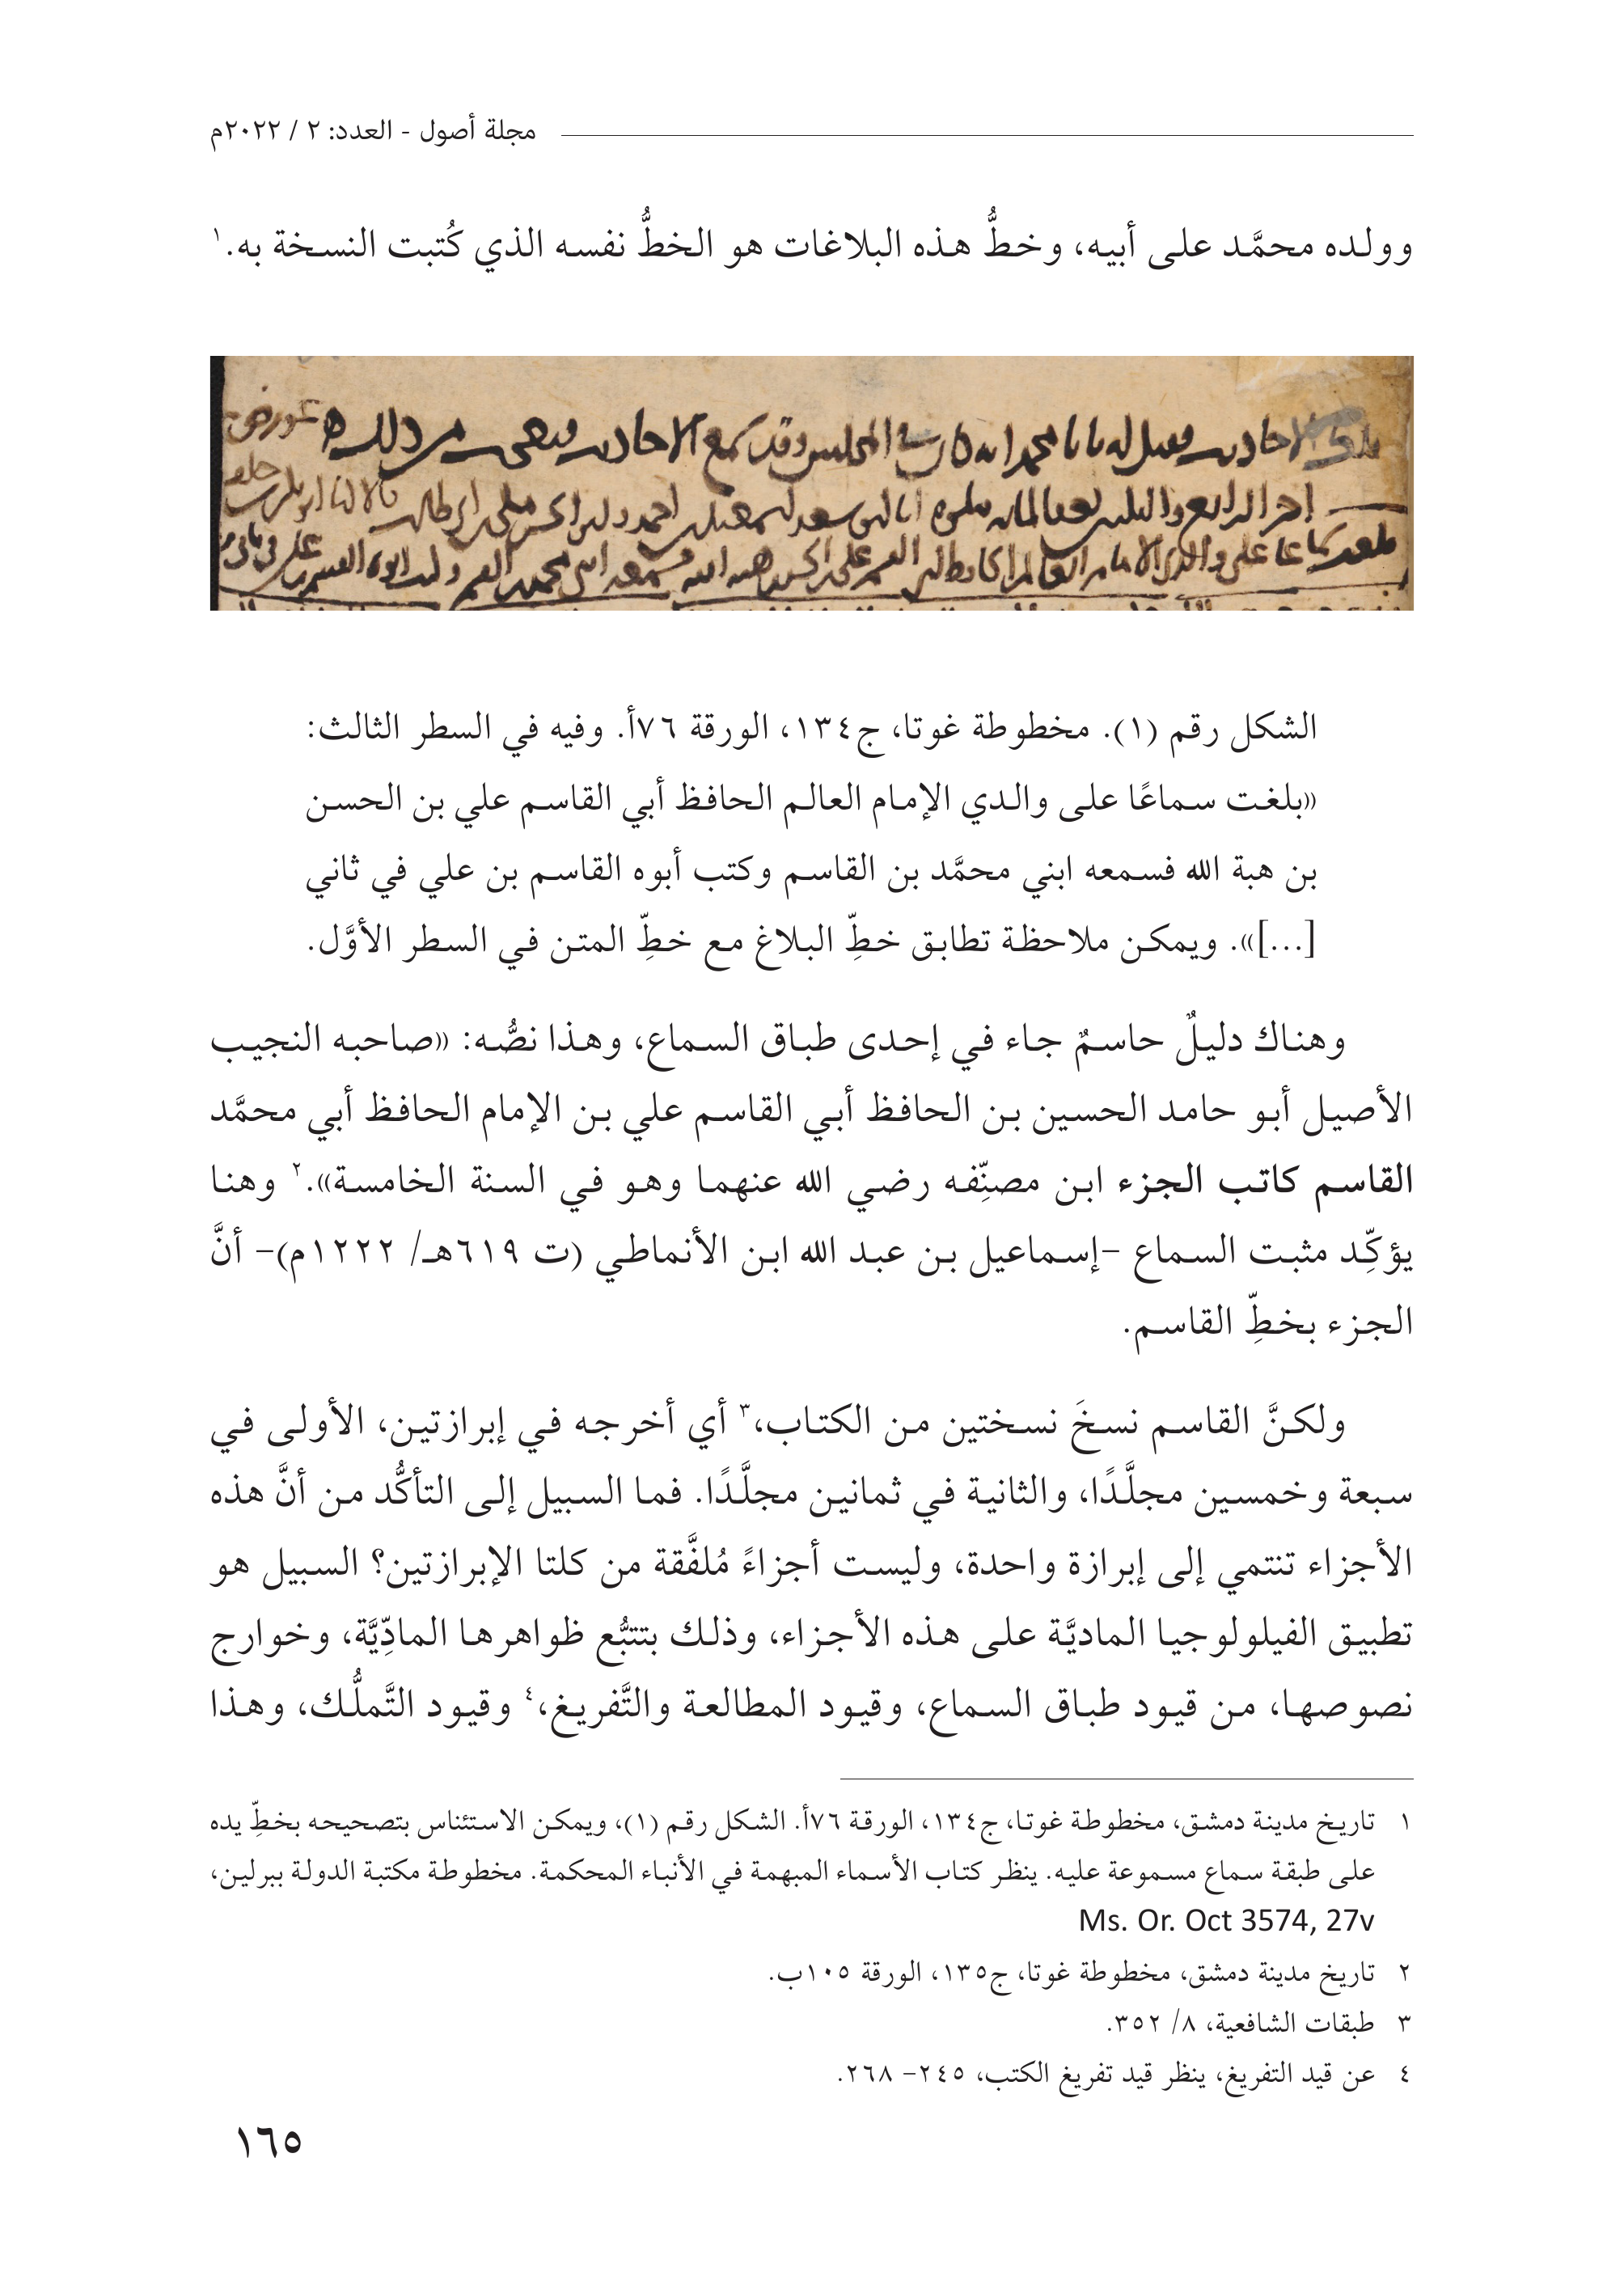 مجلة أصول - العدد: ٢ / ٢٠٢٢م
وولده محمَّد على أبيه، وخطُّ هذه البلاغات هو الخطُّ نفسه الذي كُتبت النسخة به.١
الاحاديث فقيل له يا با محمد انه كان في المجلس وقد سمع الاحاديث فتعجب من ذلك
اخر الرابع
بلغت سماعا على والدي الامام العالم الحافظ ابي القسم علي بن الحسن بن هبة الله فسمعه ابني محمد بن القسم وكتب ابوه القسم بن علي في ثاني
الشكل رقم (١). مخطوطة غوتا، ج١٣٤، الورقة ٧٦أ. وفيه في السطر الثالث:
«بلغت سماعًا على والدي الإمام العالم الحافظ أبي القاسم علي بن الحسن
بن هبة الله فسمعه ابني محمَّد بن القاسم وكتب أبوه القاسم بن علي في ثاني
[...]». ويمكن ملاحظة تطابق خطِّ البلاغ مع خطِّ المتن في السطر الأوَّل.
وهناك دليلٌ حاسمٌ جاء في إحدى طباق السماع، وهذا نصُّه: «صاحبه النجيب
الأصيل أبو حامد الحسين بن الحافظ أبي القاسم علي بن الإمام الحافظ أبي محمَّد
القاسم كاتب الجزء ابن مصنِّفه رضي الله عنهما وهو في السنة الخامسة».٢ وهنا
يؤكِّد مثبت السماع –إسماعيل بن عبد الله ابن الأنماطي (ت ٦١٩هـ/ ١٢٢٢م)– أنَّ
الجزء بخطِّ القاسم.
ولكنَّ القاسم نسخَ نسختين من الكتاب،٣ أي أخرجه في إبرازتين، الأولى في
سبعة وخمسين مجلَّدًا، والثانية في ثمانين مجلَّدًا. فما السبيل إلى التأكُّد من أنَّ هذه
الأجزاء تنتمي إلى إبرازة واحدة، وليست أجزاءً مُلفَّقة من كلتا الإبرازتين؟ السبيل هو
تطبيق الفيلولوجيا الماديَّة على هذه الأجزاء، وذلك بتتبُّع ظواهرها المادِّيَّة، وخوارج
نصوصها، من قيود طباق السماع، وقيود المطالعة والتَّفريغ،٤ وقيود التَّملُّك، وهذا
١ تاريخ مدينة دمشق، مخطوطة غوتا، ج١٣٤، الورقة ٧٦أ. الشكل رقم (١)، ويمكن الاستئناس بتصحيحه بخطِّ يده
على طبقة سماع مسموعة عليه. ينظر كتاب الأسماء المبهمة في الأنباء المحكمة. مخطوطة مكتبة الدولة ببرلين،
Ms. Or. Oct 3574, 27v
٢ تاريخ مدينة دمشق، مخطوطة غوتا، ج١٣٥، الورقة ١٠٥ب.
٣ طبقات الشافعية، ٨/ ٣٥٢.
٤ عن قيد التفريغ، ينظر قيد تفريغ الكتب، ٢٤٥– ٢٦٨.
١٦٥